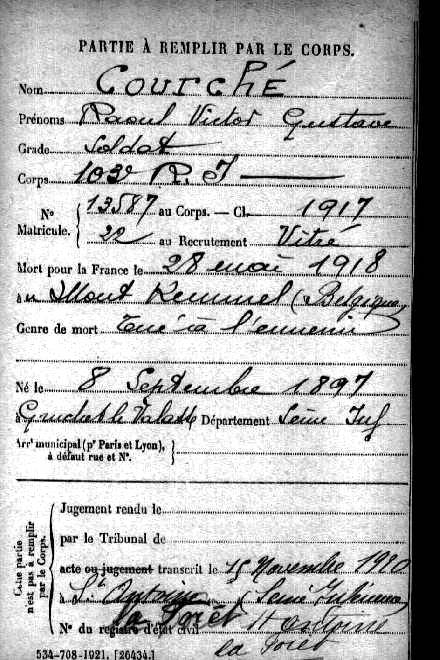 PARTIE À REMPLIR PAR LE CORPS.
Nom Courché
Prénoms Raoul Victor Gustave
Grade Soldat
Corps 103e R. I
N° Matricule. { 13587 au Corps. — Cl. 1917
22 au Recrutement Vitré
Mort pour la France le 28 mai 1918
à Mont Kemmel (Belgique)
Genre de mort Tué à l'ennemi
Né le 8 Septembre 1897
à Gruchet le Valasse Département Seine Inf
Arrt municipal (pr Paris et Lyon), à défaut rue et N°. }
Cette partie n'est pas à remplir par le Corps.
Jugement rendu le
par le Tribunal de
acte ou jugement transcrit le 15 Novembre 1920
à St Antoine la Foret (Seine Inférieure
N° du registre d'état civil St Antoine
la Foret
534-708-1921. [26434.]